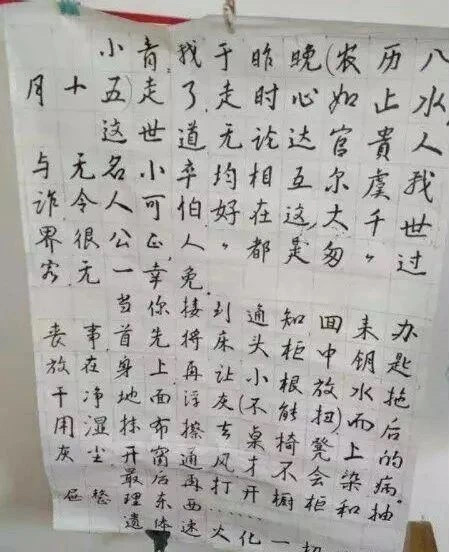 小青,我于昨晚(农历八
月十五)走了,走时心如止水,
这世道无论达官贵人
与无名小卒均相互尔虞我
诈.令人可伯好在这,大千世
界很公正,人〃都是匆〃过
客无一幸免.
当你接到通知回来办
丧事首先将床头柜中钥匙
放在身上再让小根放水拖
干净地面洋灰(不能扭)而后
用湿抹布擦去桌椅凳上的
灰尘开窗通风才不会染病.
最后再打开橱柜和抽
屉整理东西……一切
遗体速火化